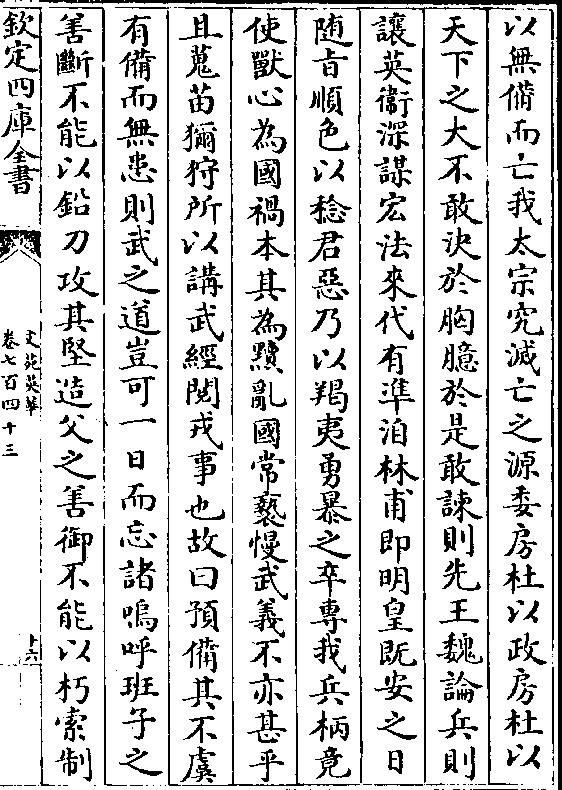 以無備而亡我太宗究滅亡之源委房杜以政房杜以
天下之大不敢決於胸臆於是敢諫則先王魏論兵則
讓英衞深謀宏法來代有準洎林甫即明皇既安之日
随旨順色以稔君惡乃以羯夷勇暴之卒專我兵柄竟
使獸心為國禍本其為黷亂國常褻慢武義不亦甚乎
且蒐苗獮狩所以講武經閲戎事也故曰預備其不虞
有備而無患則武之道豈可一日而忘諸嗚呼班子之
善斷不能以鉛刀攻其堅造父之善御不能以朽索制
欽定四庫全書
文苑英華
卷七百四十三
十六